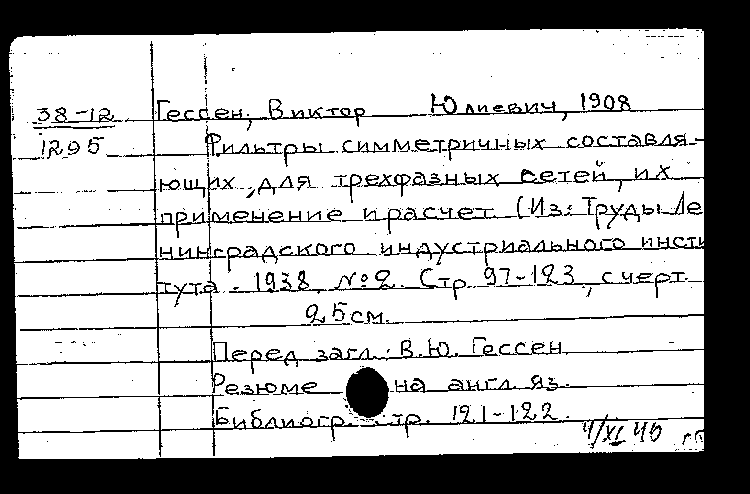 38-12 Гессен, Виктор Юлиевич, 1908
1295 Фильтры симметричных составля-
ющих, для трехфазных сетей, их
применение и расчет (Из: Труды Ле
нинградского индустриального инсти
тута. 1938 №2. Стр 97-123, с черт.
25 см.
Перед загл.: В.Ю. Гессен
Резюме на англ. яз.
Библиогр. стр. 121-122.
4/XI 40